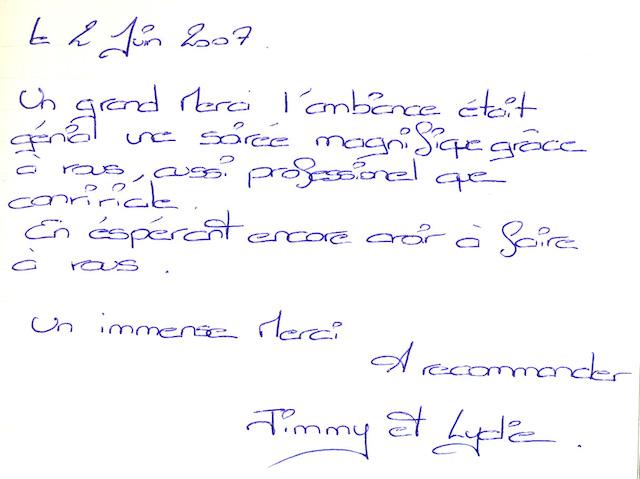 Le 2 Juin 2007.
Un grand Merci l'ambiance était
génial une soirée magnifique grâce
à vous, aussi professionel que
convivial.
En éspérant encore avoir à faire
à vous.
Un immense Merci
A recommander
Jimmy et Lydie.